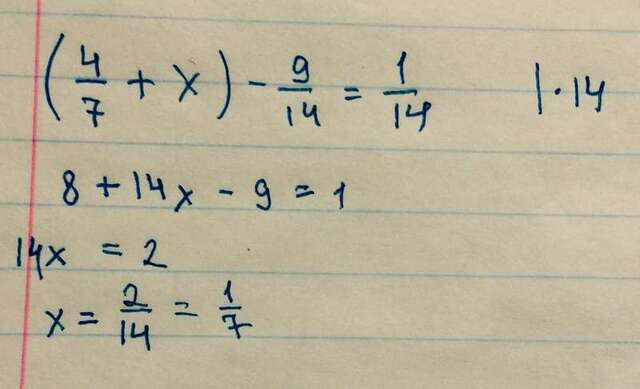 (4/7 + x) - 9/14 = 1/14 |·14
8 + 14x - 9 = 1
14x = 2
x = 2/14 = 1/7